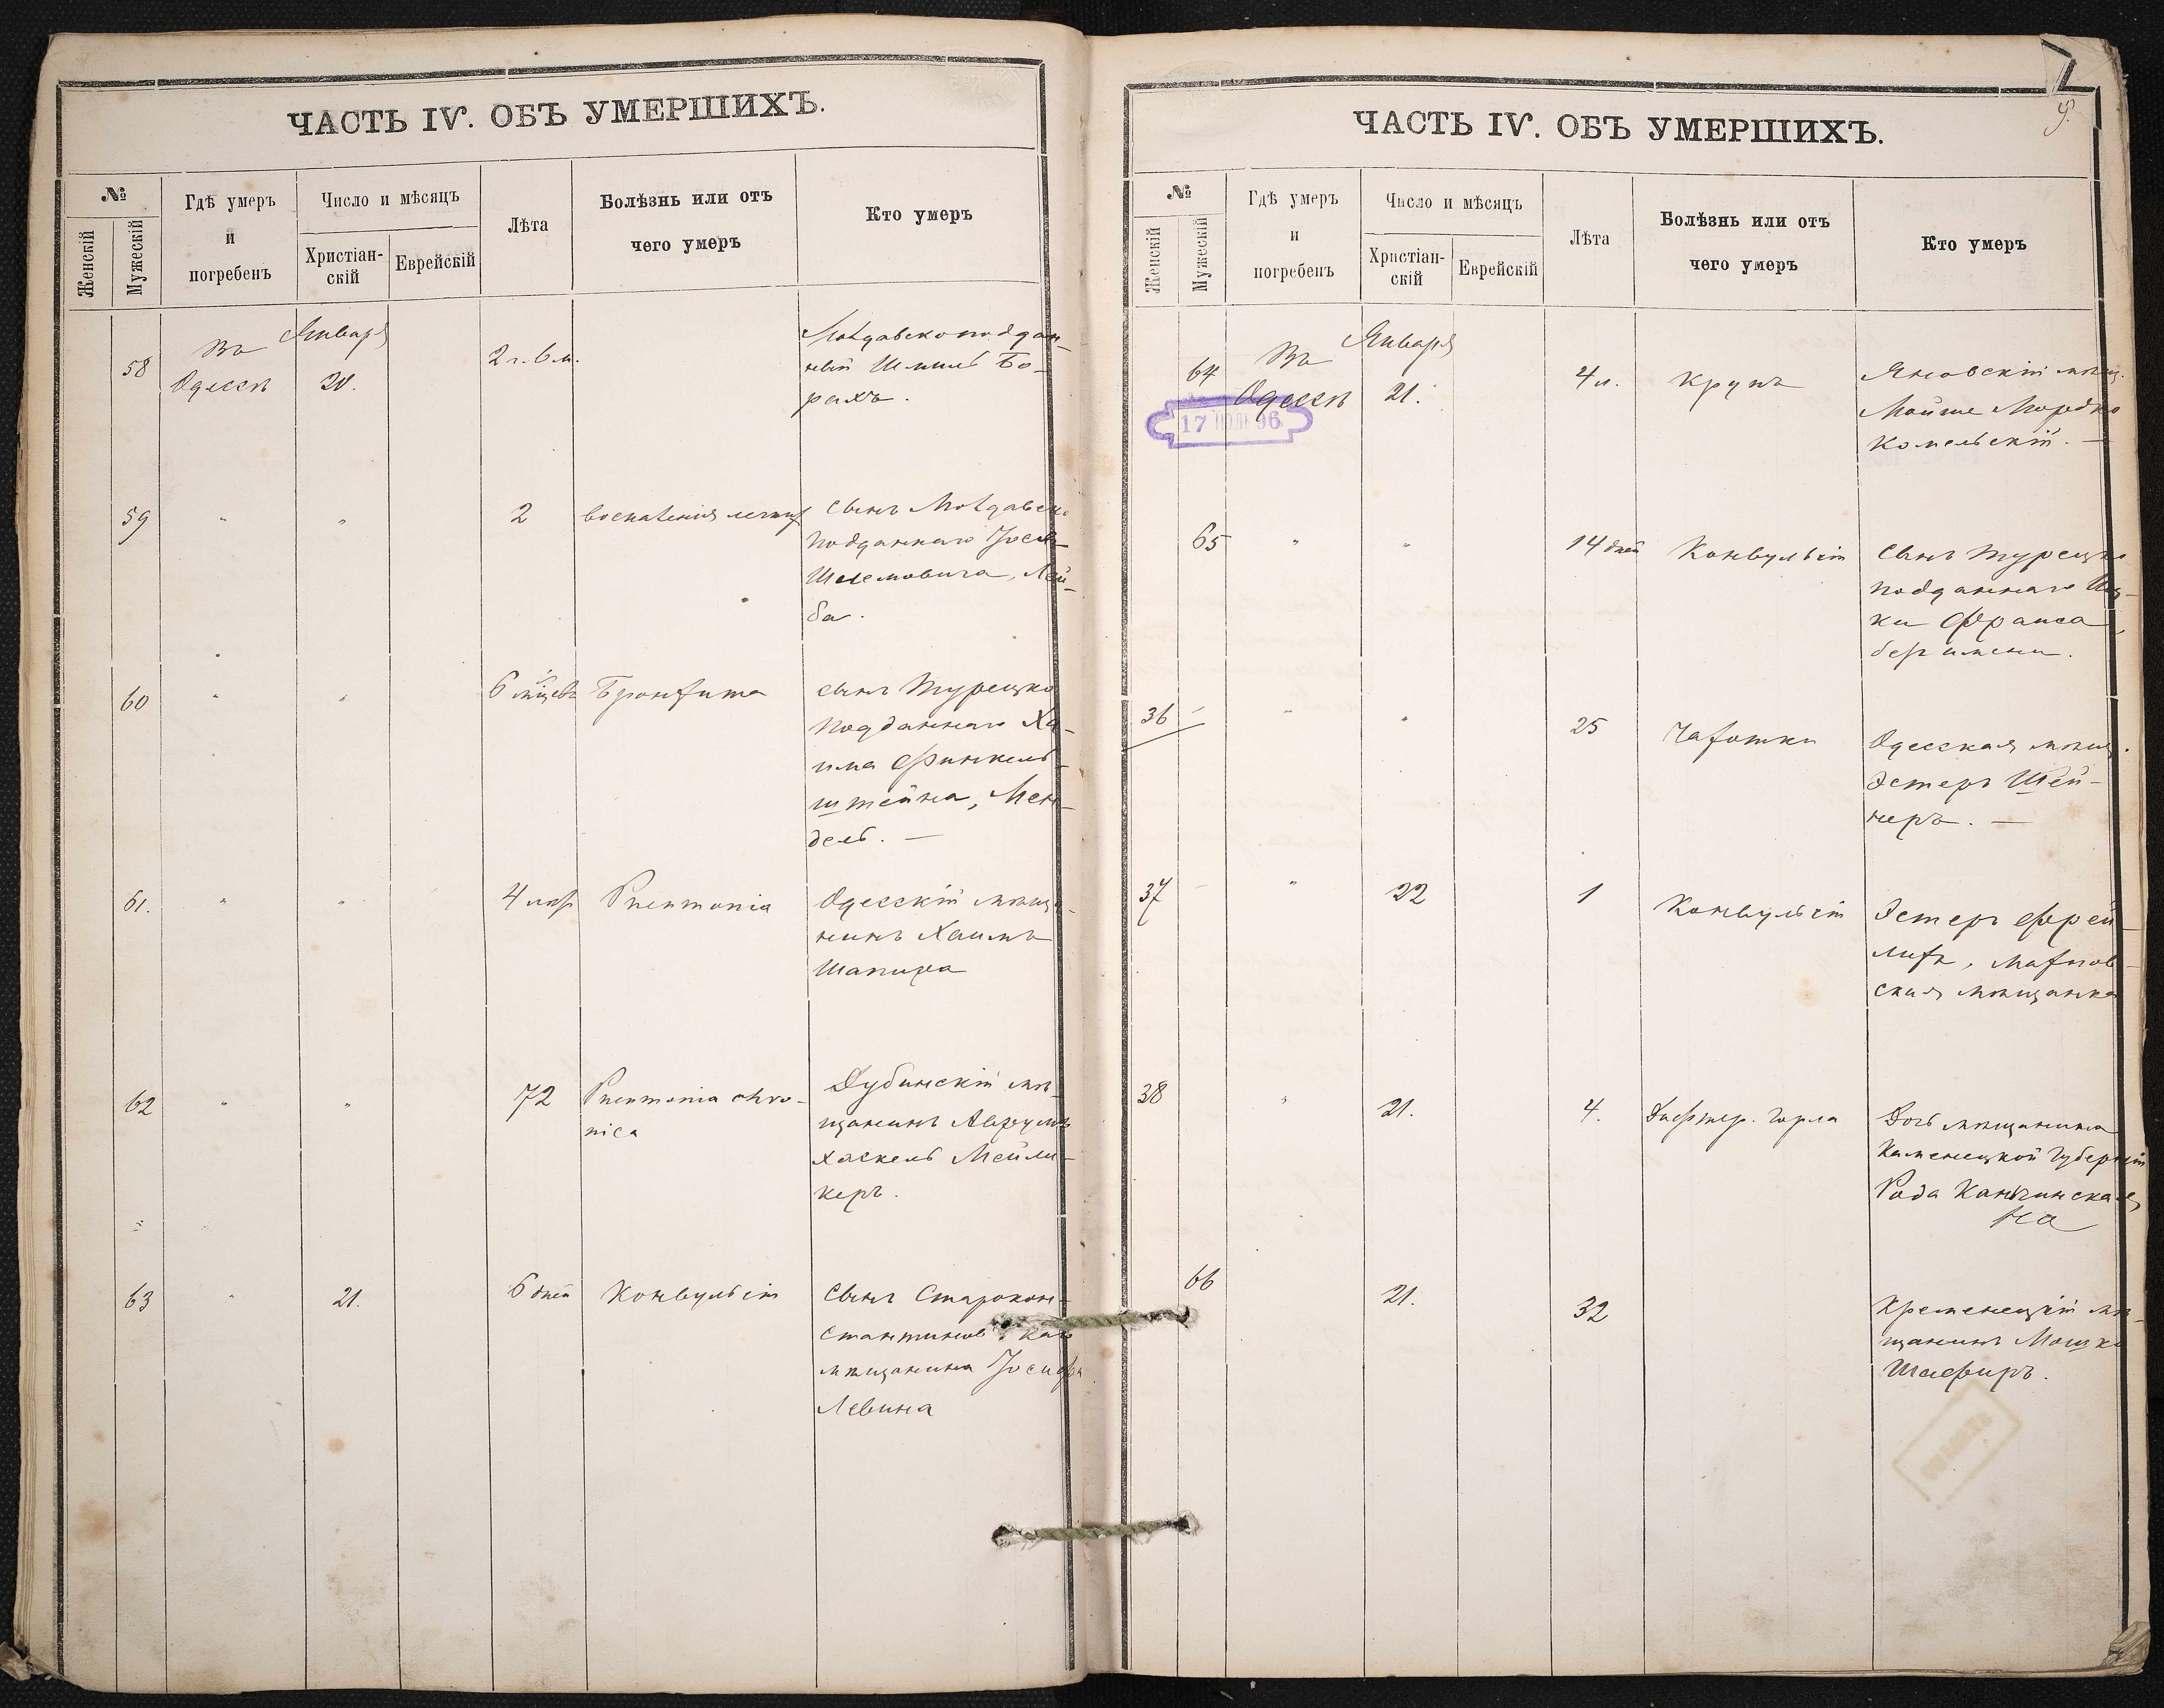 ЧАСТЬ IV. ОБЪ УМЕРШИХЪ.
№
Женскій
Мужескій
Гдѣ умеръ
и
погребенъ
Число и мѣсяцъ
Христіан-
скій
Еврейскій
Лѣта
Болѣзнь или отъ
чего умеръ
Кто умеръ
58
Въ
Одессѣ
Января
20.
2 г. 6 м.
Молдавскоподдан-
ный Шмиль Бо-
рахъ.
59
"
"
2
воспаленія легких
сынъ Молдавско
подданнаго Іосъ
Шлемовича, Лей-
ба.
60
"
"
6 мѣсцевъ
Бронхита
сынъ Турецко
подданнаго Ха-
има Финкель-
штейна, Мен-
дель. —
61.
"
"
4 мѣс
Pneumonia
Одесскій мѣща-
нинъ Хаимъ
Шапира
62
"
"
72
Pneumonia chro-
nica
Дубинскій мѣ-
щанинъ Аврумъ
Хаскель Мейли-
керъ.
63
"
21.
6 дней
Конвульсіи
Сынъ Старокон-
стантиновскаго
мѣщанина Іосифа
Левина
ЧАСТЬ IV. ОБЪ УМЕРШИХЪ.
№
Женскій
Мужескій
Гдѣ умеръ
и
погребенъ
Число и мѣсяцъ
Христіан-
скій
Еврейскій
Лѣта
Болѣзнь или отъ
чего умеръ
Кто умеръ
64
Въ
Одессѣ
17 ІЮЛ 96
Января
21.
4 л.
Крупъ
Яновскій мѣщ.
Мойше Мордко
Комельскій. —
65
"
"
14 дней
Конвульсіи
Сынъ Турецко
подданнаго Иц-
ки Франса
безъ имени.
36
"
"
25
Чахотки
Одесская мѣщ.
Эстеръ Шей-
неръ. —
37
"
22
1
Конвульсіи
Эстеръ Фрей-
лихъ,
ская мѣщанка
38
"
21.
4.
Дифтер. горла
Дочь мѣщанина
Каменецкой губерніи
Рода Канчинская
на
66
21.
32
Кременецкій мѣ-
щанинъ Мошко
Шафиръ.